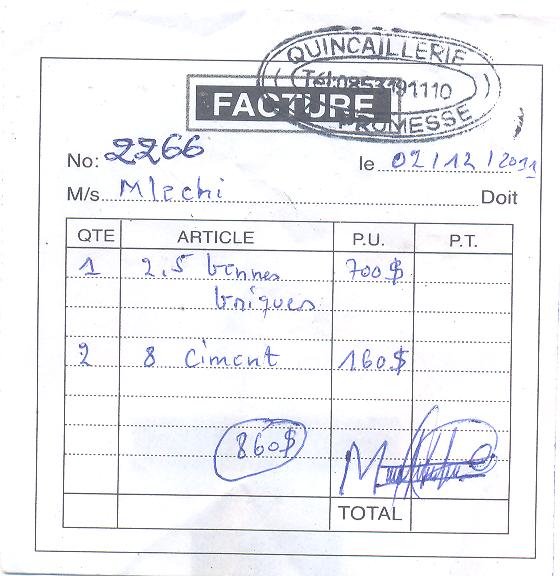 QUINCAILLERIE
Tél:0853191110
PROMESSE
FACTURE
No: 2266 le 02/12/2011
M/s Mlechi Doit
QTE ARTICLE P.U. P.T.
1 2,5 bennes 700$
briques
2 8 ciment 160$
860$
TOTAL